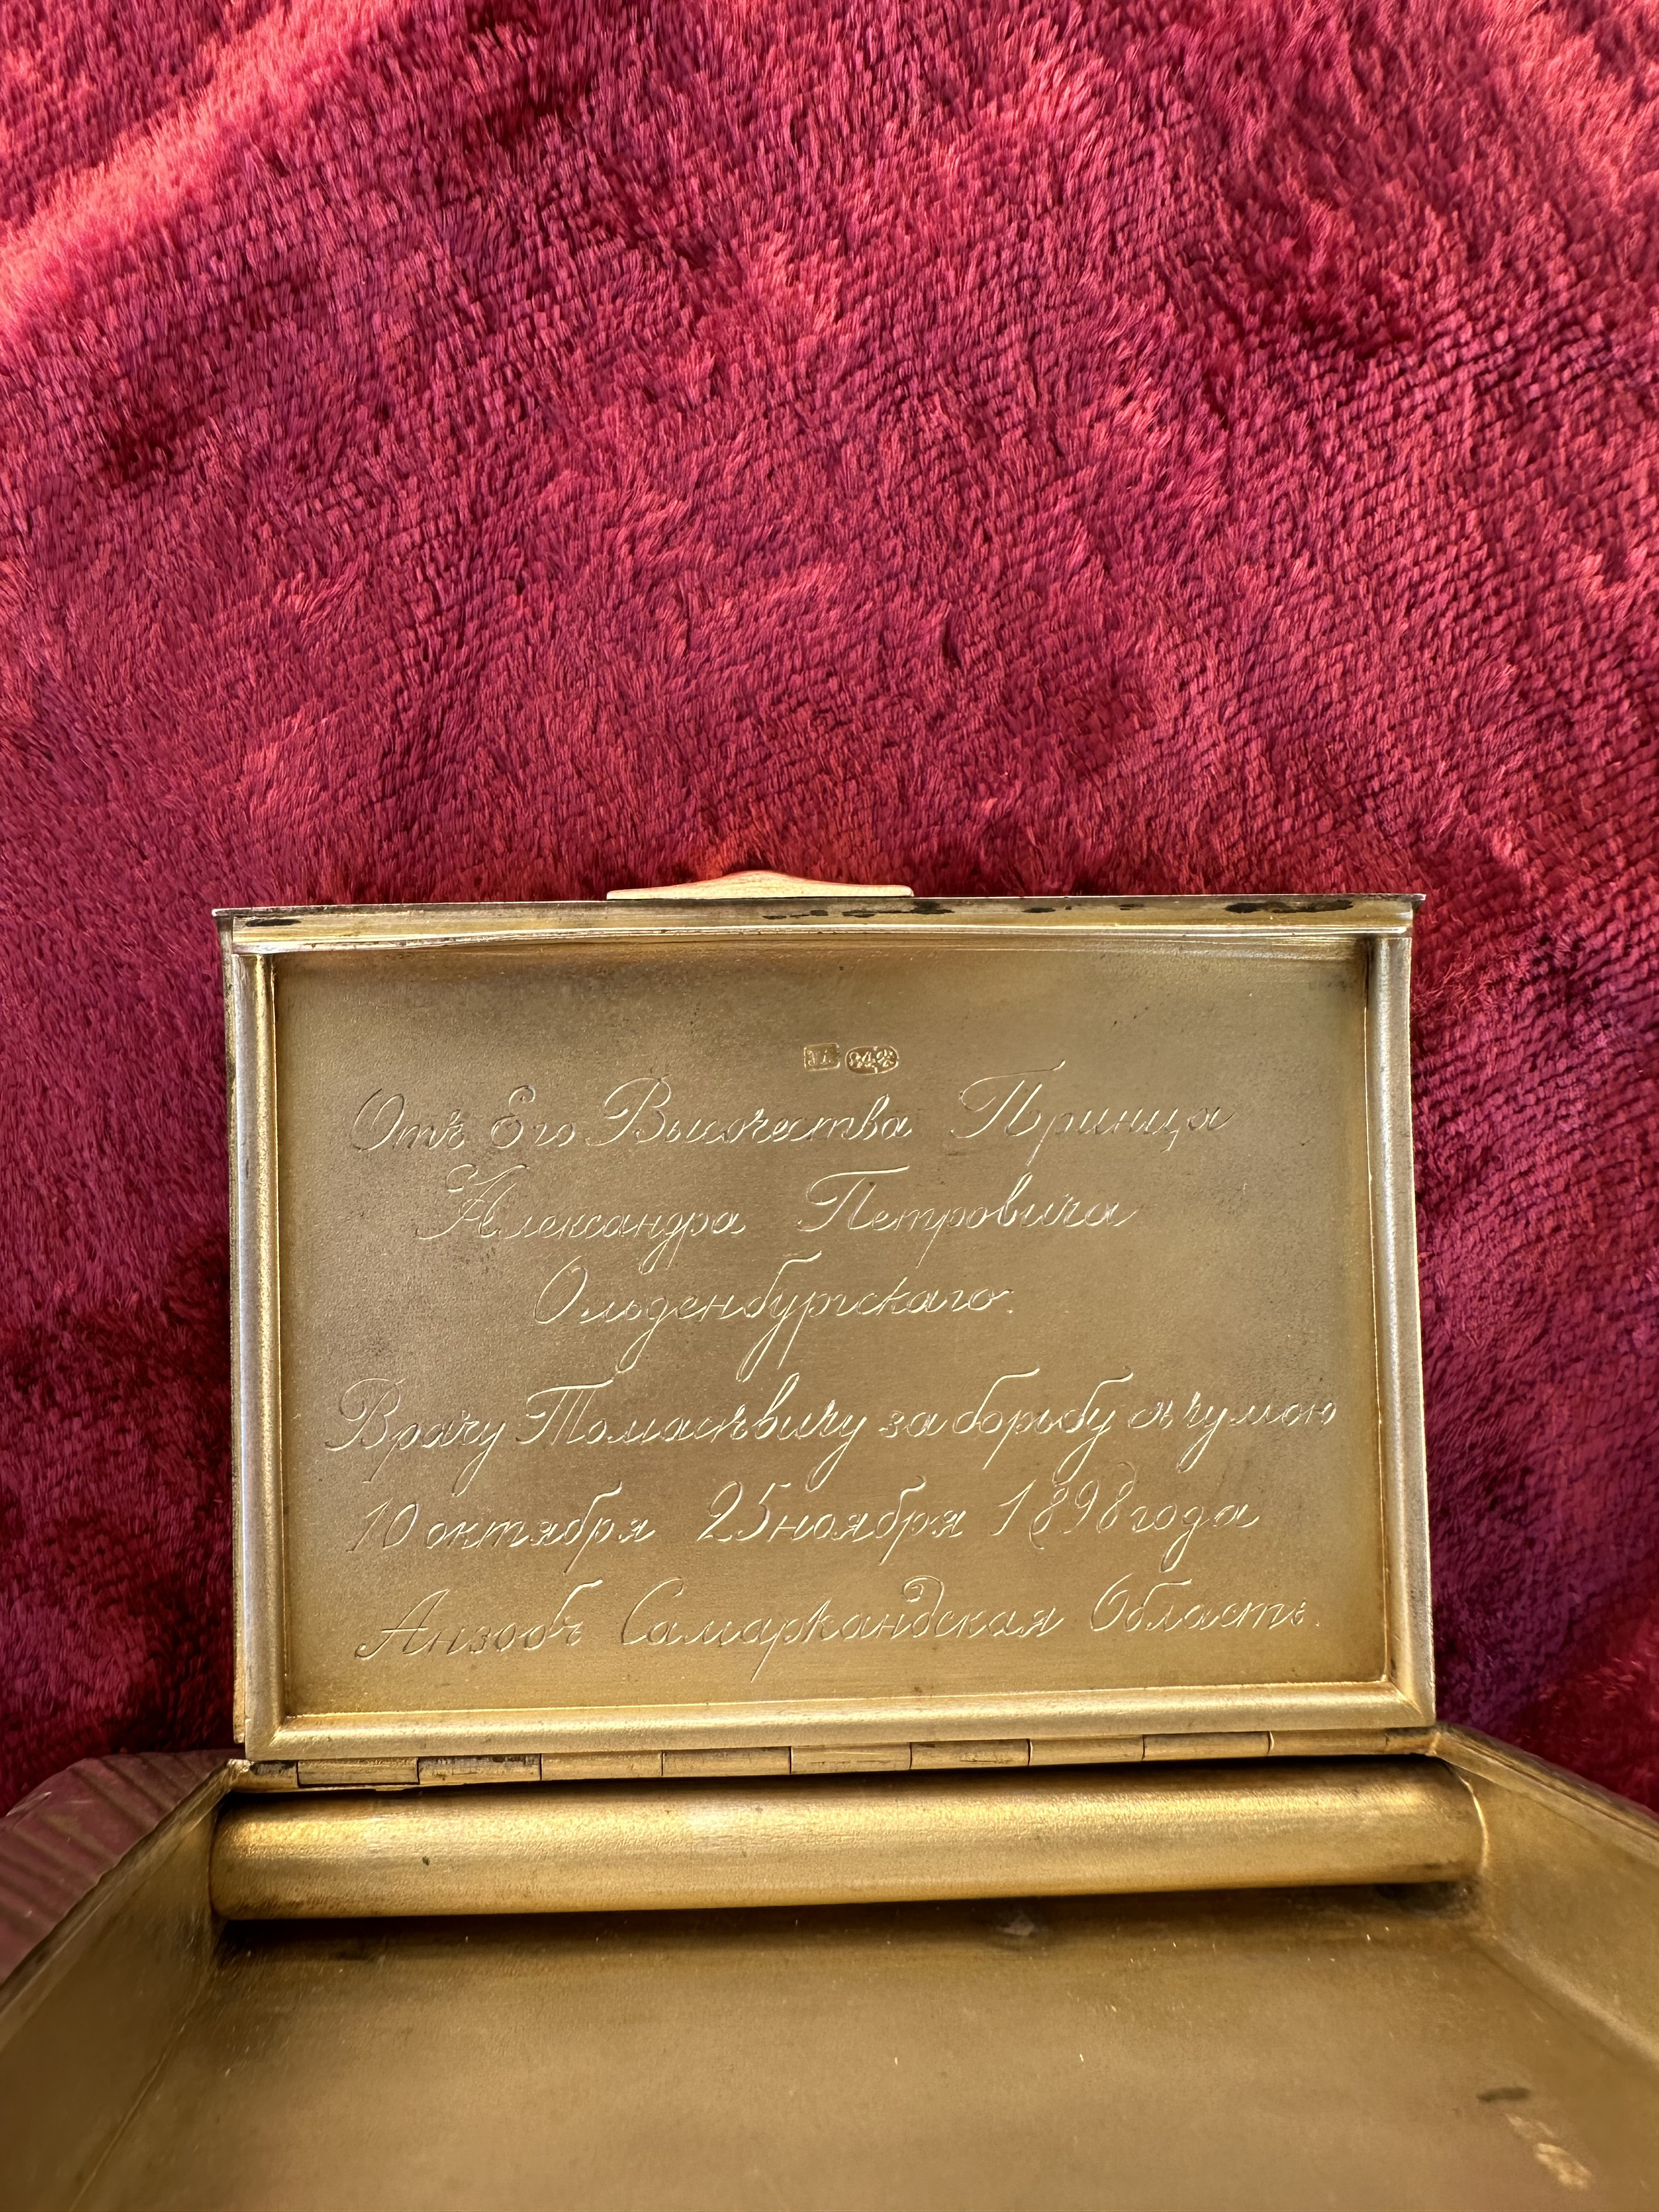 84
Отъ Его Высочества Принца
Александра Петровича
Ольденбургскаго.
Врачу Томашѣвичу за борьбу съ чумою
10 октября 25 ноября 1898 года
Анзобъ Самаркандская Область.